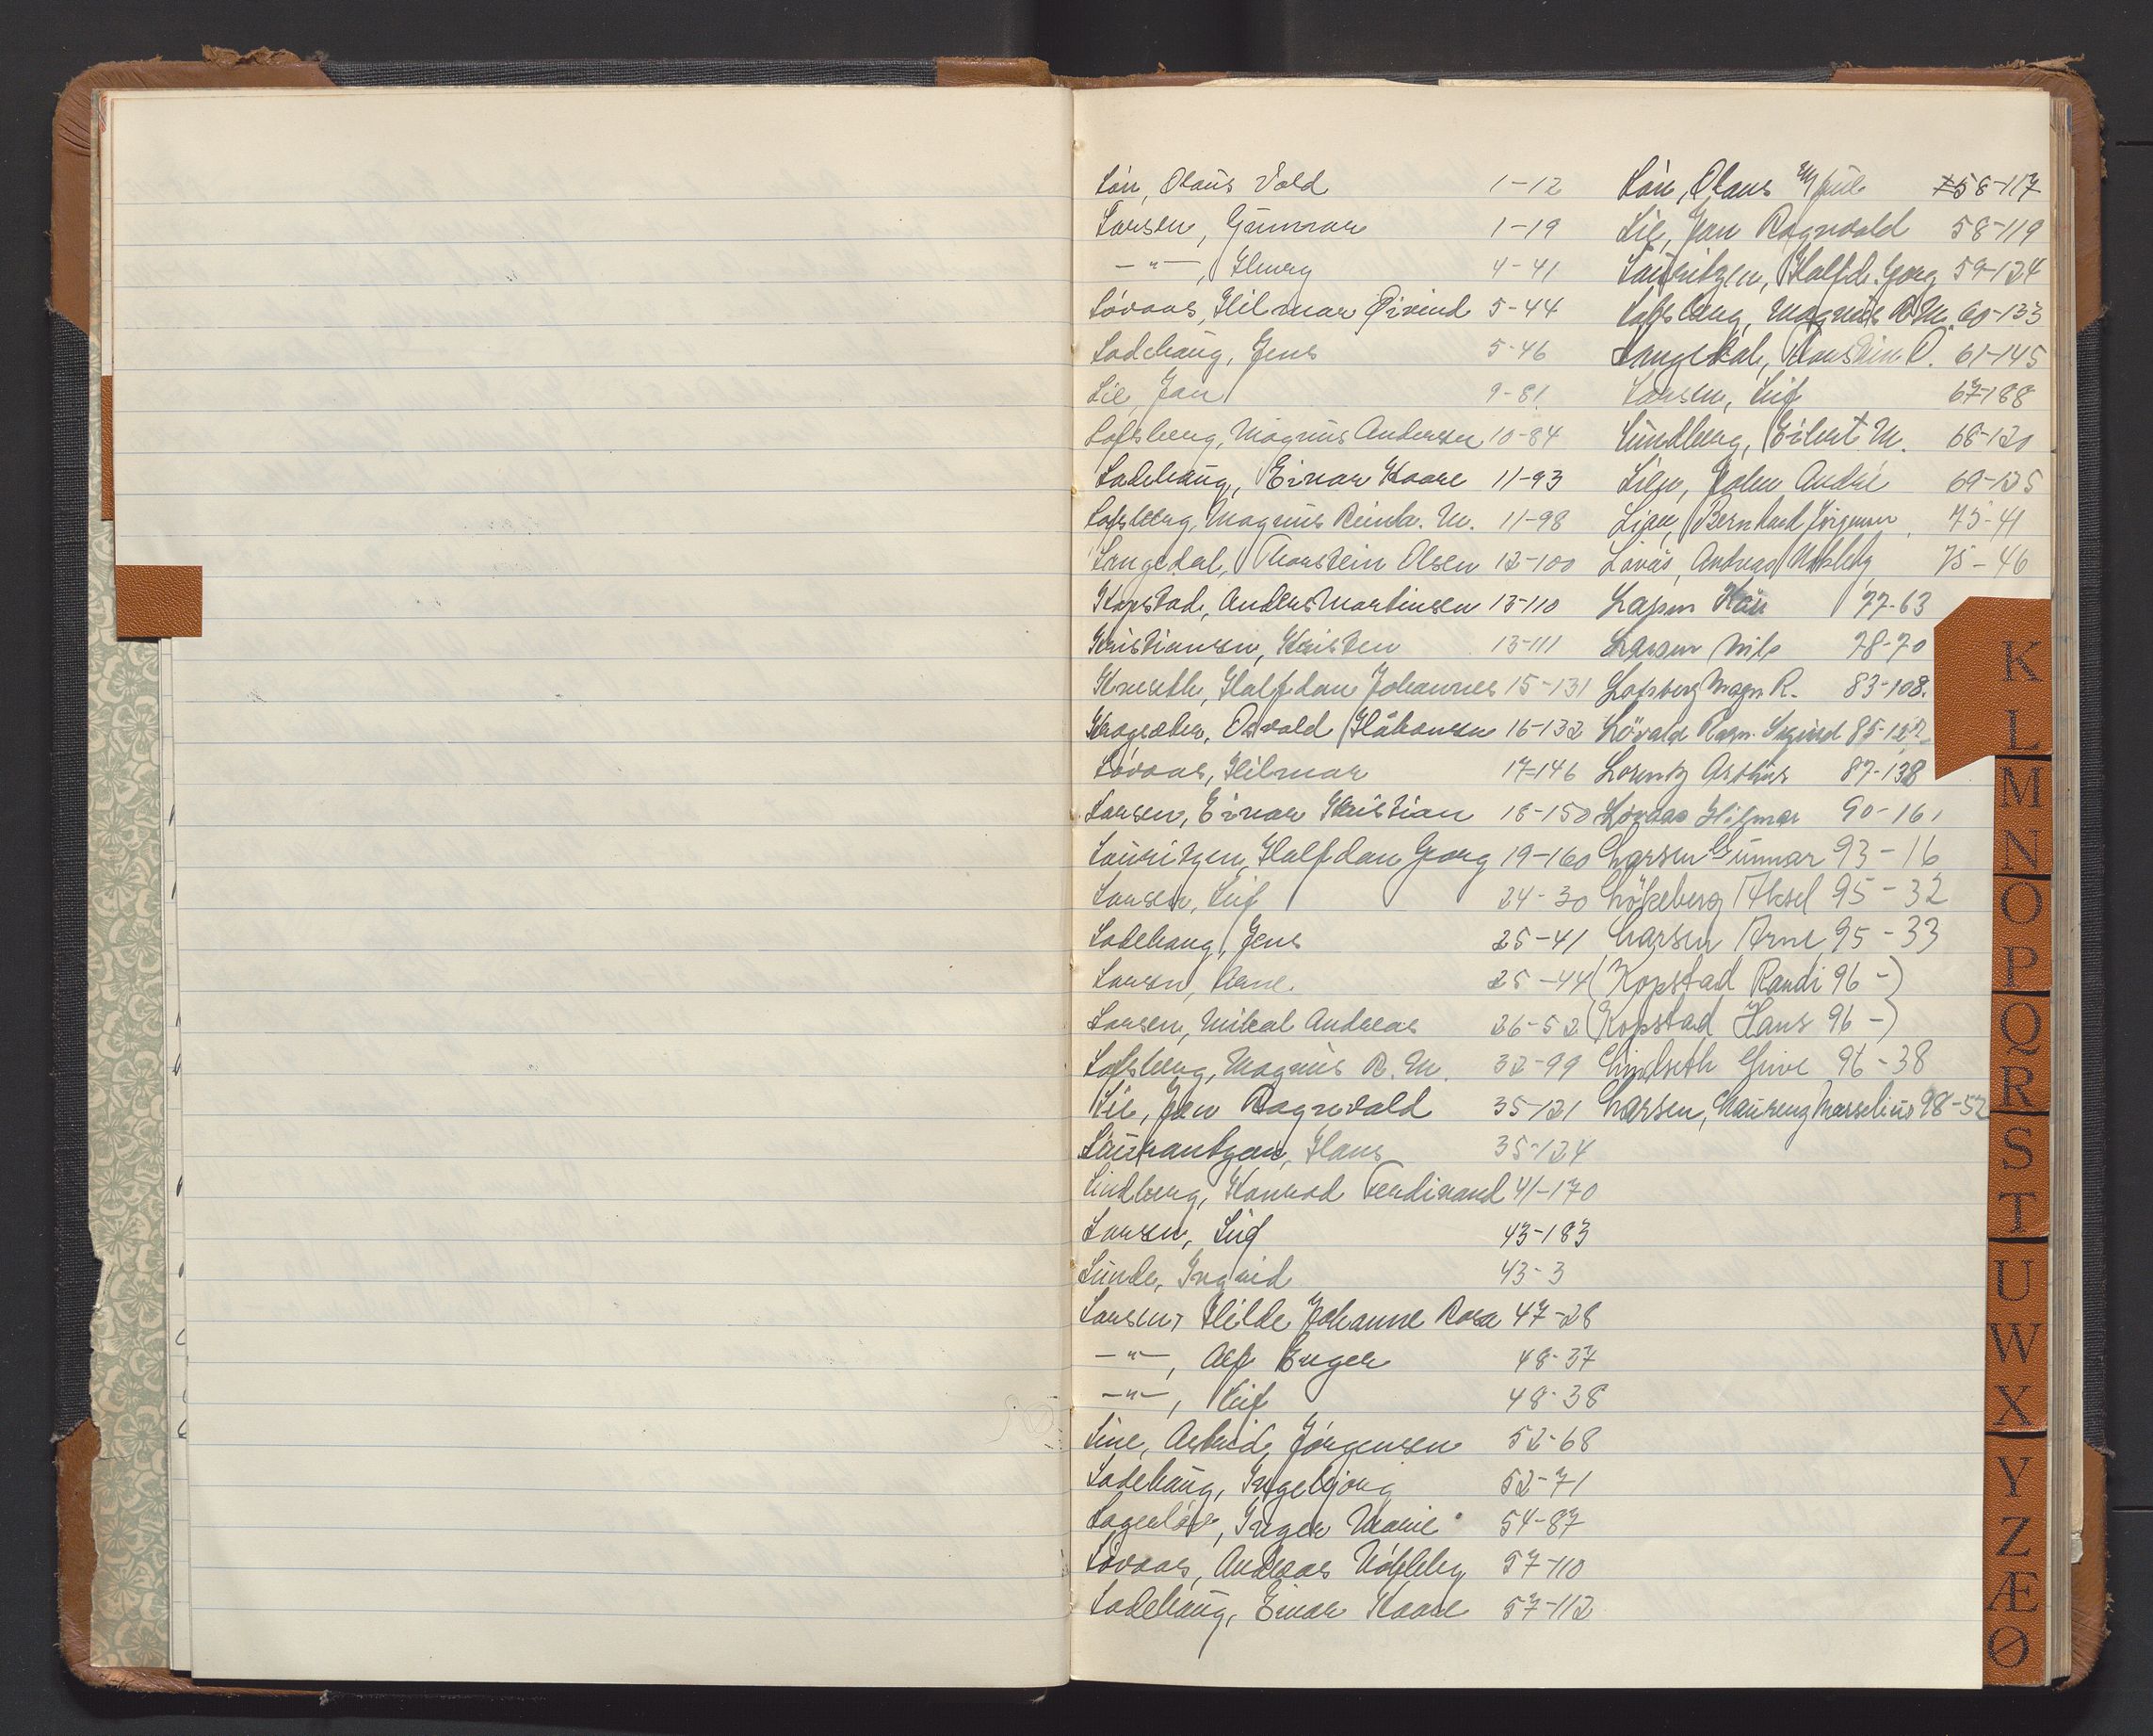 Løn, Olaus Vold 1-12
Larsen, Gunnar 1-19
-"-, Henry 4-41
Lövaas, Hilmar Øivind 5-44
Ladehaug, Jens 5-46
Lie, Jan 9-81
Lofsberg, Magnus Andersen 10-84
Ladehaug, Einar Kaare 11-93
Lofsberg, Magnus Reinh. M. 11-98
Langedal, Thorstein Olsen 12-100
Kopstad, Anders Martinsen 13-110
Kristiansen, Kristen 13-111
Kruseth, Halfdan Johannes 15-131
Kragseter, Osvald Håkonsen 16-132
Lövaas, Hilmar 17-146
Larsen, Einar Kristian 18-150
Lauritzen, Halfdan Georg 19-160
Larsen, Leif 24-30
Ladehaug, Jens 25-41
Larsen, Arne. 25-44
Larsen, Mikal Andreas 26-52
Lofsberg, Magnus R. M. 32-99
Lie, Jan Ragnvald 35-121
Laurantzen, Hans 35-124
Lindberg, Konrad Ferdinand 41-170
Larsen, Leif 43-183
Lunde, Ingrid 43-3
Larsen, Hilde Johanne Rosa 47-28
-"-, Alf Enger 48-37
-"-, Leif 48-38
Line, Astrid Jørgensen 52-68
Ladehaug, Ingebjørg 52-71
Lagerløv, Inger Marie 54-87
Lövaas, Andreas Nökleby 57-110
Ladehaug, Einar Kaare 57-112
Løn, Olaus 58-117
Lie, Jan Ragnvald 58-119
Lauritzen, Halfd. Georg 59-124
Lofsberg, Magnus R. M. 60-133
Langedal, Thorstein O. 61-145
Larsen, Leif 67-188
Lundberg, Eilert M. 68-120
Lien, John André 69-125
Lian, Bernhard Jörgensen 75-41
Lövås, Andreas Nökleby 75-46
Larsen Kåre 77-63
Larsen Nils 78-70
Lofsberg Magn R. 83-108.
Lövald Ragn. Sigurd 85-122
Lorentz Arthur 87-138
Lövaas Hilmar 90-161
Larsen Gunnar 93-16
Lökeberg Aksel 95-32
Larsen Arne 95-33
(Kopstad Randi 96-)
(Kopstad Hans 96-)
Lindseth Give 96-38
Larsen, Laurenz Marselius 98-52
K
L
M
N
O
P
Q
R
S
T
U
W
X
Y
Z
Æ
Ø